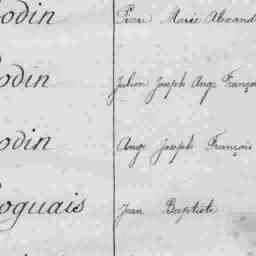 odin Pierre Marie Alexand
odin Julien Joseph Ange Françoi
odin Ange Joseph François
oguais Jean Baptiste